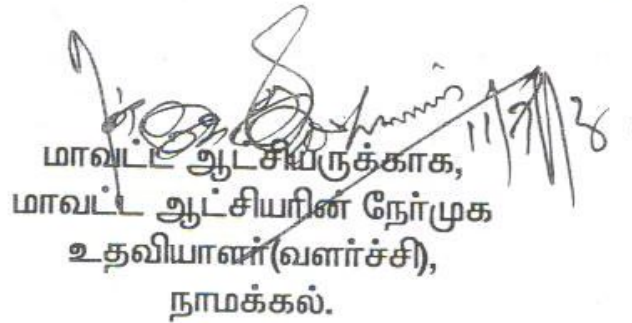 மாவட்ட ஆட்சியருக்காக,
மாவட்ட ஆட்சியரின் நேர்முக
உதவியாளர்(வளர்ச்சி),
நாமக்கல்.